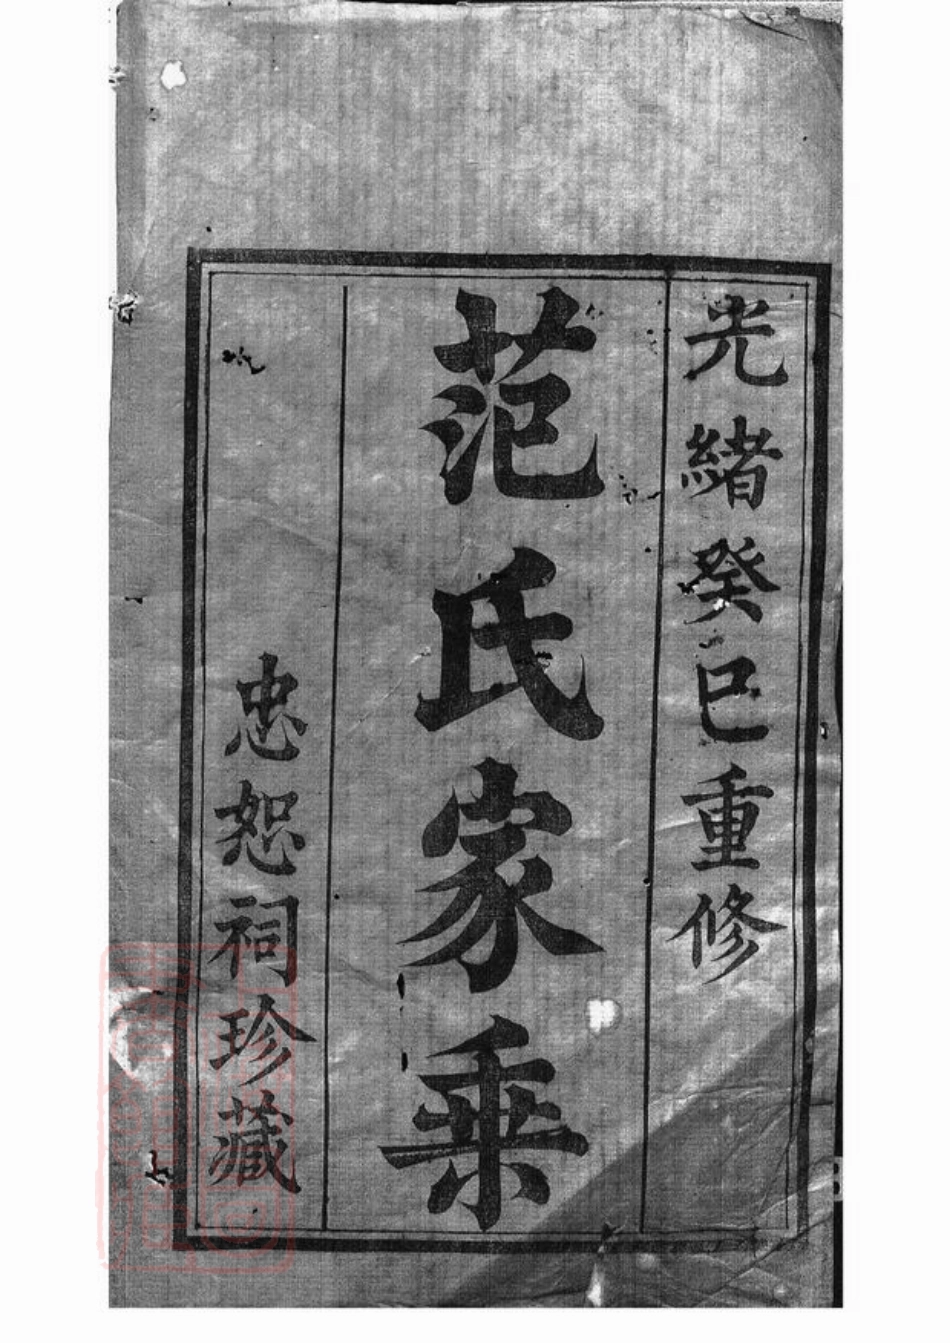 光緒癸巳重修
范氏家乗
忠恕祠珍藏